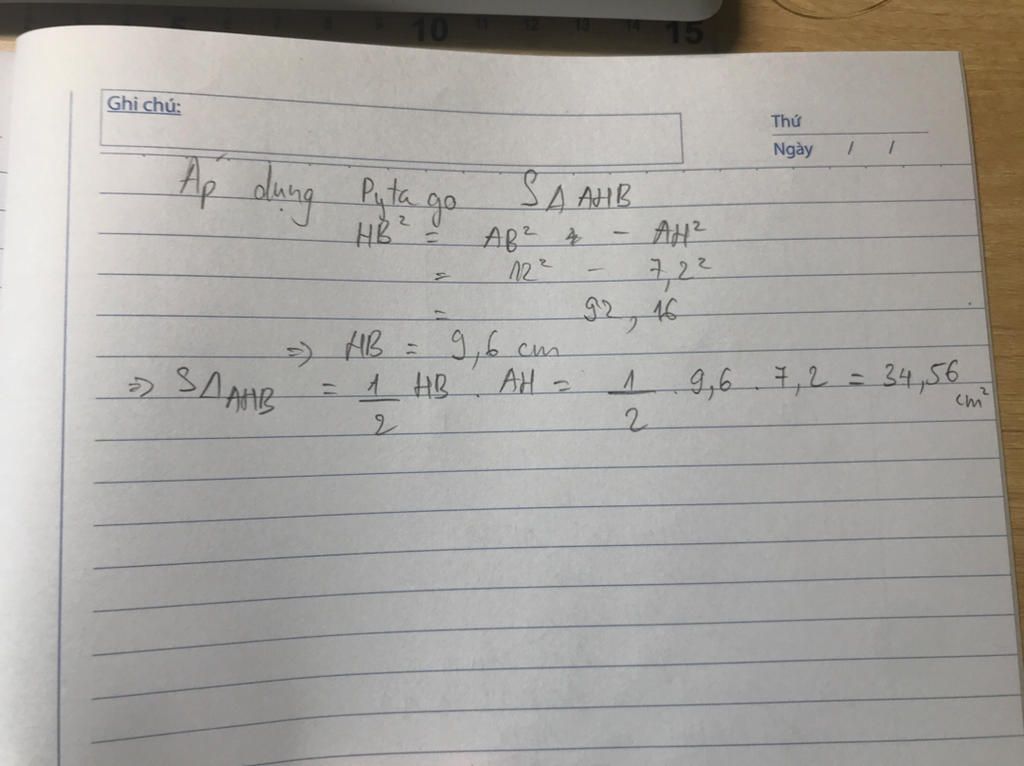 10 11 12 13 14 15
Ghi chú:
Thứ
Ngày / /
Áp dụng Pytago SΔAHB
HB² = AB² - AH²
= 12² - 7,2²
= 92,16
=> HB = 9,6 cm
=> SΔAHB = 1/2 HB . AH = 1/2 . 9,6 . 7,2 = 34,56 cm²